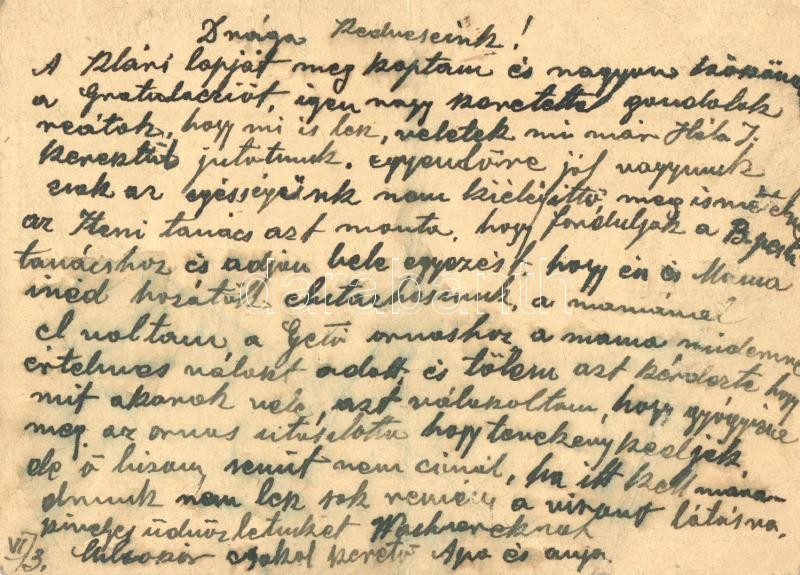 Drága Kedveseink!
A Klári lapját meg kaptam és nagyon köszönöm
a Gratulacciót, igen nagy szeretettel gondolok
reátok, hogy mi is lesz, veletek mi már Hála I.
keresztül jutottunk. egyenlőre jól vagyunk
csak az egésségeink nem kielégitő, meg isme
az Heni tanács azt monta, hogy forduljak a Bpesti
tanácshoz és adjon bele egyezést, hogy én és Mama
inéd hozátok elutazhassunk, a mamával
el voltam a Gető orvoshoz a mama mindenre
értelmes választ adott és tőlem azt kérdezte hogy
mit akarok vele, azt válaszoltam, hogy gyógyitsa
meg. az orvos utasitotta hogy tevékenykedjék
de ő bizony semit nem cinál, ha itt kell mara-
dnunk nem lesz sok remény a viszont látásra.
szivélyes üdvözletünket
VI/3. csokol szerető Apa és anya.
databanth